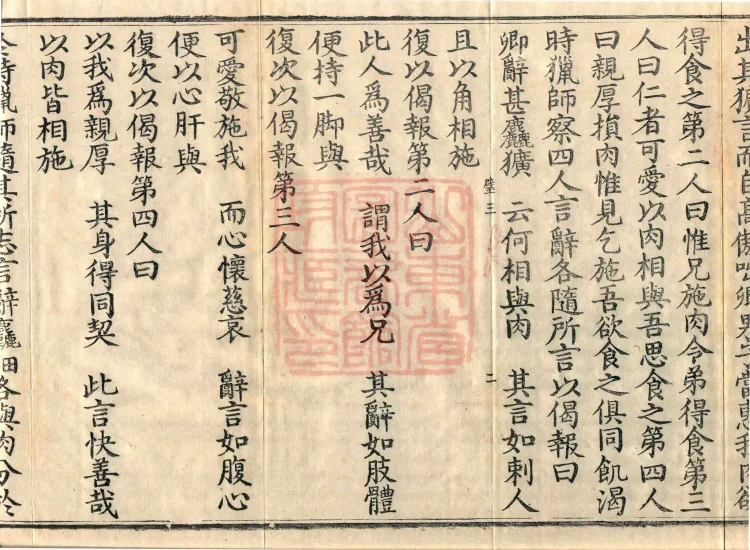 其獷言而自高傲咄卿男子當惠我肉欲
得食之第二人曰惟兄施肉令弟得食第三
人曰仁者可愛以肉相與吾思食之第四人
曰親厚損肉惟見乞施吾欲食之俱同飢渴
時獵師察四人言辭各隨所言以偈報曰
卿辭甚麤獷　云何相與肉　其言如刺人
壁三　二
且以角相施
復以偈報第二人曰
此人爲善哉　謂我以爲兄　其辭如肢體
便持一脚與
復次以偈報第三人
可愛敬施我　而心懷慈哀　辭言如腹心
便以心肝與
復次以偈報第四人曰
以我爲親厚　其身得同契　此言快善哉
以肉皆相施
時獵師隨其所志言辭麤細各與肉分於